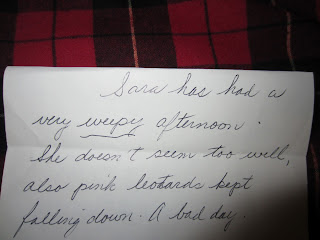 Sara has had a
very weepy afternoon.
She doesn't seem too well,
also pink leotards kept
falling down. A bad day.